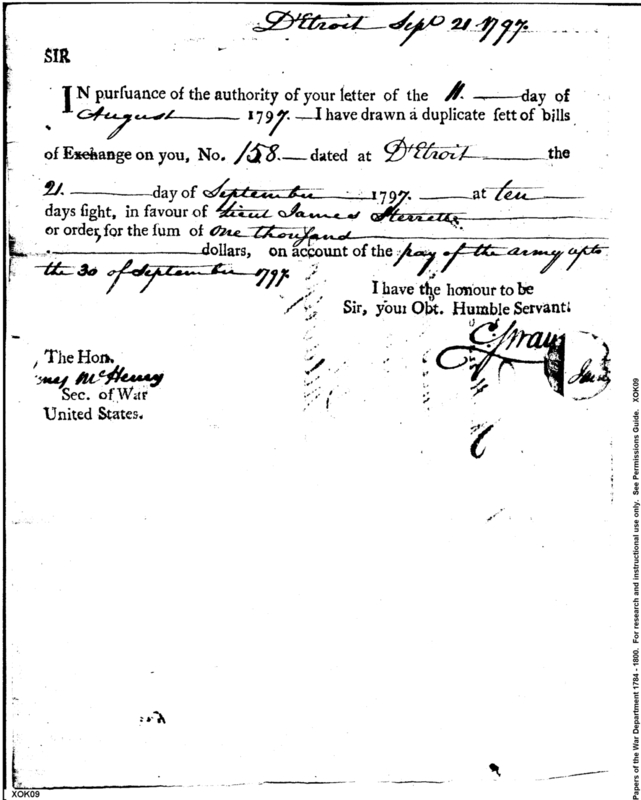 D'Etroit Sept 21 1797.
SIR
IN purſuance of the authority of your letter of the 11. day of
August 1797.—I have drawn a duplicate ſett of bills
of Exchange on you, No. 158.— dated at D'Etroit the
21. day of September 1797. at ten
days ſight, in favour of Lieut James Sterrett
or order, for the ſum of One thouſand
dollars, on account of the pay of the army upto
the 30 of September 1797
I have the honour to be
Sir, your Obt. Humble Servant:
C. Swan
The Hon.
McHenry
Sec. of War
United States.
XOK09
Papers of the War Department 1784 - 1800. For research and instructional use only. See Permissions Guide. XOK09